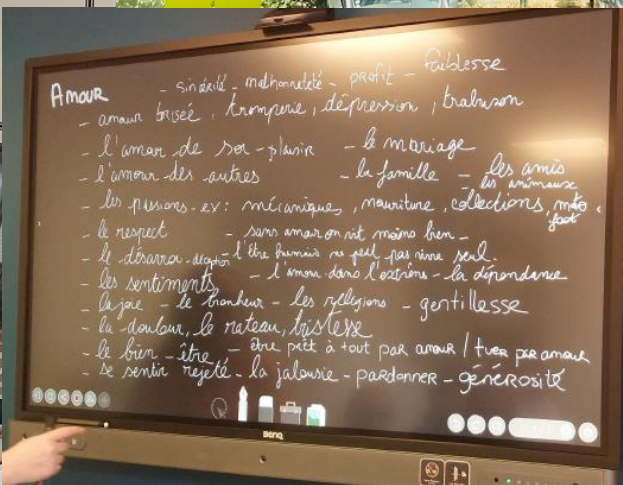 AMOUR - sincérité - malhonneteté - profit - faiblesse
- amour brisée, tromperie, dépression, trahison
- l'amour de soi - plaisir - le mariage
- l'amour des autres - la famille - les amis
les animaux
- les passions - ex: mécaniques, nourriture, collections, moto
foot
- le respect - sans amour on vit moins bien -
- le désarroi - déception l'être humain ne peut pas vivre seul.
- les sentiments - l'amour dans l'extrême - la dépendance
- la joie - le bonheur - les religions - gentillesse
- la douleur, le rateau, tristesse
- le bien-être - être prêt à tout par amour / tuer par amour
- se sentir rejeté - la jalousie - pardonner - générosité
BENQ